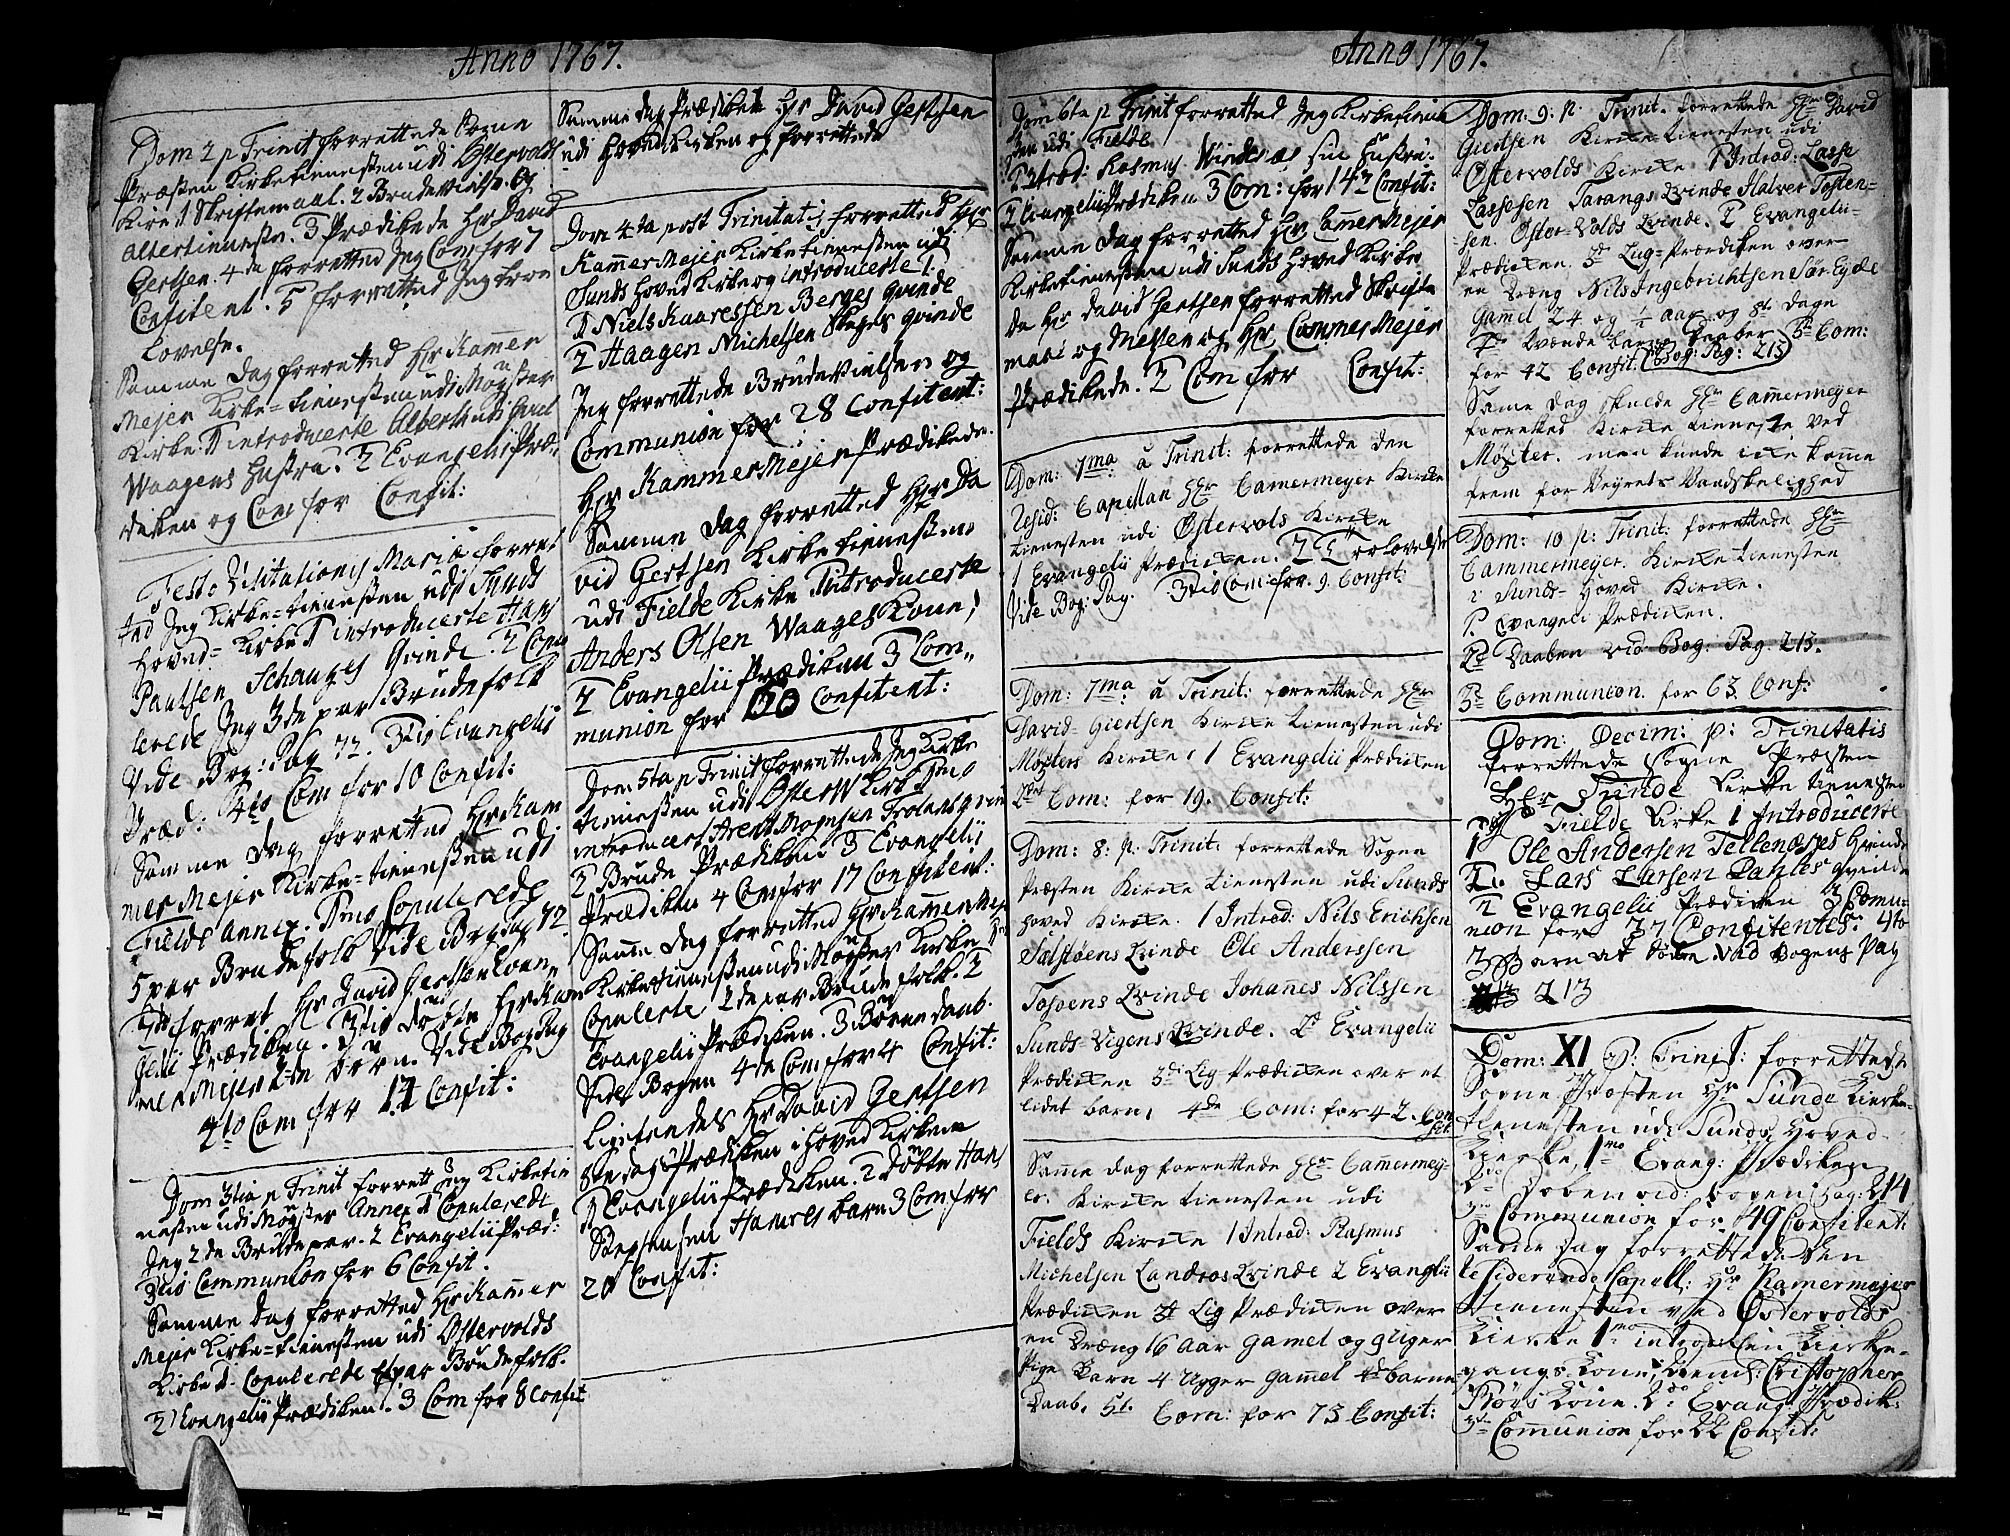 Anno 1767.
Dom 2 p Trinit forrettede Sogne
Præsten Kirketienesten udi Østervold
Kirke 1 Skriftemaal. 2 Brudevielse. Og
Altertieneste. 3 Prædikede Hr David
Gertsen. 4de forretted Jeg Com for 7
Confitent. 5 forretted Jeg tro
Lovelse.
Samme Dag forretted Hr Kammer
Mejer Kirke=tienesten udi Møgster
Kirke. 1 introducerte Albert
Waagens Hustru. 2 Evangelii Præ„
diken og Com for Confit:
Festo Visitationis Mariæ forret
ted Jeg Kirke=tienesten udi Sunds
Hoved=Kirke 1 introducerte Hans
Paulsen Schanges Qvinde. 2 Copu
lerede Jeg 3de par Brudefolk
Vide Bog: Pag 72. 3tio Evangelii
Præd: 4to Com for 10 Confit:
Samme Dag forretted Hr Kam
mer Mejer Kirke=tienesten udi
Fielde Annex. Imo Copulerede
5 par Brudefolk Vide Bog Pag 72.
2do forret Hr David Gertsen Evan„
gelii Prædiken. 3tio døbte Hr Kam
mer Mejer 2de Børn. Vide Bog Pag
4to Com for 14 Confit:
Dom 3tia p Trinit forrett Jeg Kirketie
nesten udi Møgster Annex 1 Copuleredt
Jeg 2de Brudepar. 2 Evangelii Præd:
3tio Communion for 6 Confit.
Samme Dag forretted Hr Kammer
Mejer Kirke=tienesten udi Østervolds
Kirke 1. Copulerede par Brudefolk.
2 Evangelii Prædiken. 3 Com for 8 Confit
Samme dag Prædiket Hr David Gertsen
udi Hoved Kirken og forrettede
Dom 4ta post Trinitatis forretted Hr
Kammer Mejer Kirketienesten udi
Sunds Hoved Kirke og introducerte
1 Niels Kaaressen Berges qvinde
2 Haagen Michelsen Skages qvinde
Jeg forrettede Brudevielsen og
Communion for 28 Confitent:
Hr Kammer Mejer Prædikede.
Samme Dag forretted Hr Da
vid Gertsen Kirketienesten
udi Fielde Kirke 1 introducerte
Anders Olsen Waages Kone;
2 Evangelii Prædiken 3 Com„
munion for 50 Confitent:
Dom 5ta p Trinit forrettede Jeg Kirke
tienesten udi Østerv Kirk 1mo
introducert Arent Mogensen Trolands qvin
2 Brude Prædiken 3 Evangelii
Prædiken 4 Com for 17 Confitent:
Samme Dag forretted Hr Kammer Mej
Kirketienesten udi Møgster Kirke
Copulerte 2de par Brudefolk. 2
Evangelii Prædiken. 3 Børne daab.
Vide Bogen 4de Com for 4 Confit:
Ligeledes Hr David Gertsen
Prædiken i Hoved Kirken
1 Evangelii Prædiken. 2 Døbte Hans
Stephensen Hamres barn 3 Com for
20 Confit:
Anno 1767.
Dom 6ta p Trinit forretted Jeg Kirketiene
sten udi Fielde
1 Introd: Rasmus Vindes sin Hustru.
2 Evangelii Prædiken 3 Com: for 143 Confit:
Samme Dag forretted Hr CammerMejer
Kirketienesten udi Sunds Hoved Kirke
Da Hr David Gertsen forretted Skrifte
maal og Messen og Hr Cammer Mejer
Prædikede. 2 Com for Confit:
Dom: 7ma: a Trinit: forrettede den
Resid: Capellan Hr Camermeyer Kirke
tienesten udi Østervols Kirke
1 Evangelii Prædiken. 2 Trolovelse
Vide Bog: Pag. 3tio Com: for 9. Confit:
Dom: 7ma a Trinit: forrettede Hr
David Giertsen Kirke tienesten udi
Møsters Kirke. 1 Evangelii Prædiken
2 Com: for 19. Confit:
Dom: 8: p: Trinit: forrettede Sogne
Præsten Kirke tienesten udi Sunds
Hoved Kirke. 1 Introd: Nils Erichsen
Selstøens Qvinde Ole Anderssen
Tofvens Qvinde Johanes Nilssen
Sunds-Vigens Qvinde. 2 Evangelii
Prædiken 3di Lig-Prædiken over et
lidet barn, 4de Com: for 42. Con
fit.
Samme dag forrettede Hr Camermey=
er. Kirke tienesten udi
Fields Kirke 1 Introd: Rasmus
Michelsen Landros Qvinde 2 Evanglii
Prædiken 3 Lig Prædiken over
en Dræng 16 aar gamel og 9 Uger
Pige barn 4 Ugger gammel 4de barne
Daab. 5t. Com: for 73 Confit:
Dom: 9: p: Trinit: forrettede Hr David
Giertsen Kirketienesten udi
Østervolds Kirke 1 Introd: Lasse
Lassesen Tarangs Qvinde Halver Tosten=
sen Øster-Volds Qvinde. 2 Evangelii=
Prædiken 3de Liig-Prædiken over
en Dræng Nils Ingebrichtsen Sør Eyde
Gamel 24 og ½ aar og 8t dage
Daaber 5 Com:
for 42 Confit. Bog: Pag: 213
Same dag skulde Hr Cammermeyer
forretted Kirke tieneste ved
Møster. men kunde icke kome
frem for Veyrets Vandskelighed
Dom: 10 p: Trinit: forrettede Hr
Cammermeyer. Kirke tienesten
i Sunds-Hoved Kirke.
1. Evangeli Prædiken.
2 Daaben vid Bog. Pag. 213.
3 Communion. for 63 Conf:
Dom: Decim: p: Trinitatis
forrettede Sogne Præsten
Hr Sunde Kirke tienesten
udj Fielde Kirke 1 Introducerte
1 Ole Andersen Tellenæses Qvinde
2. Lars Larsen Pahles qvinde
2 Evangelii Prædiken 3 Comu=
nion for 37 Confitentes. 4to
3 Barn at døbe. vid Bogens Pag
213
Dom: XI p: Trinit: forrettede
Sogne Præsten Hr Sunde Kierke=
tienesten udi Sunds Hoved
Kierke, 1mo Evang: Prædiken
2do Doben vid: bogen Pag: 214
3tio Communion for 49 Confitent:
Same Dag forrettede den
residerende Capell: Hr Kamermeyer
tienesten ved Østervolds
Kierke 1mo Kierke=
gangs Kone, Christopher
Røgs Kone. 2do Evang: Prædik:
3tio Communion for 22 Confit: